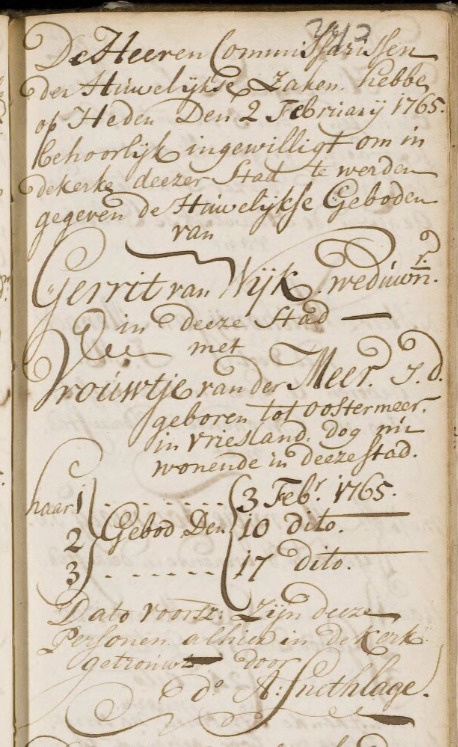 De Heeren Commissarissen
der Hŭwelijkse Zaken hebbe
op Heden Den 2 Febrŭarij 1765.
behoorlijk ingewilligt om in
de kerke deezer Stad te werden
gegeven de Hŭwelijkse Geboden
van
Gerrit van Wijk. wedŭwnr.
in deeze Stad —
met
Vroŭwtje van der Meer. J. d.
geboren tot oostermeer.
in Vriesland, dog nŭ
wonende in deeze stad.
haar 1 . . . . . . . . . 3 Febr. 1765.
2 Gebod Den 10 dito.
3 . . . . . . 17 dito.
Dato voorsz: Zijn deeze
Personen alhier in de Kerk
getroŭwt — door
ds. A: Smethlage.